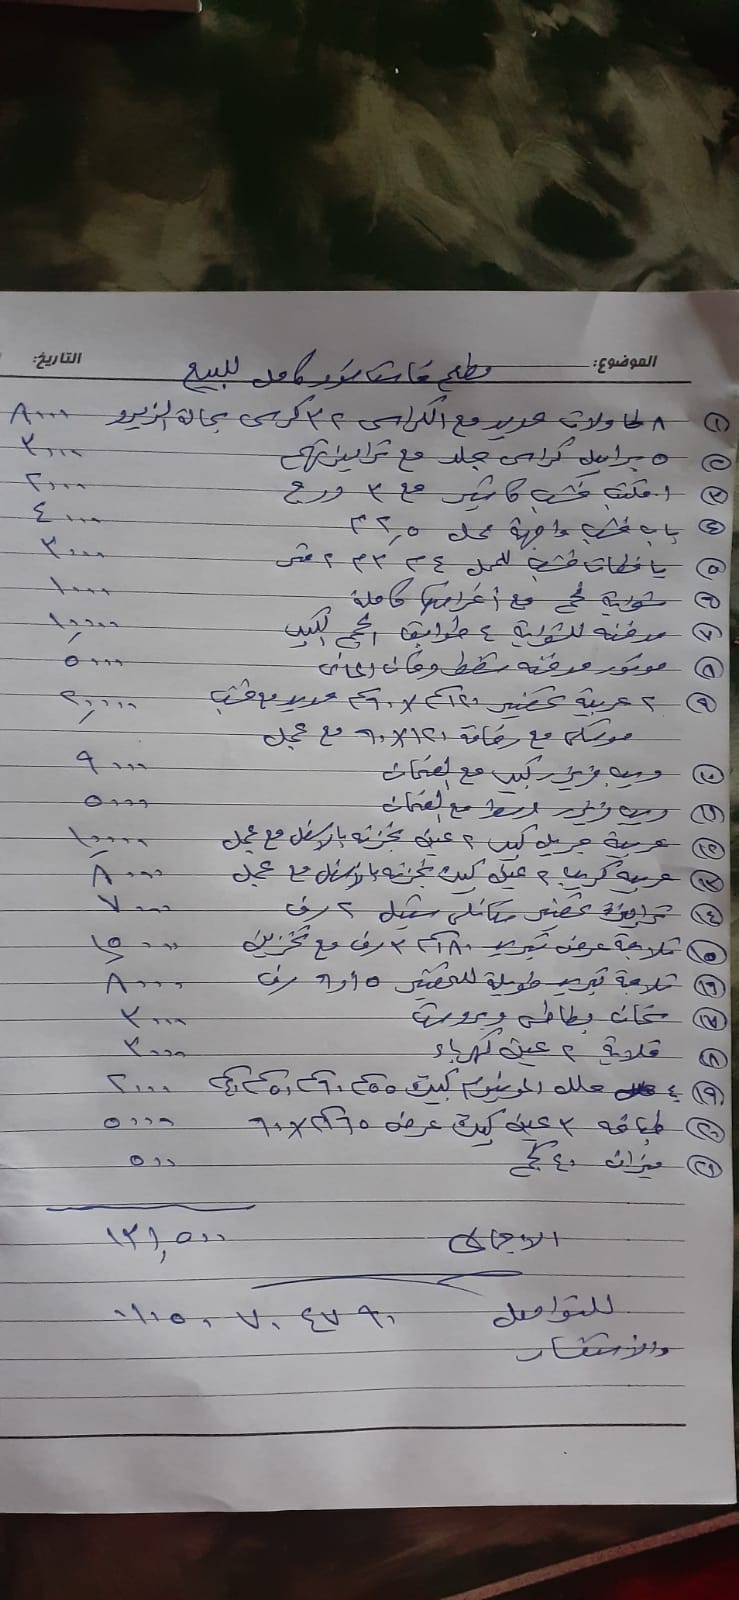 الموضوع: مطعم فاست فود كامل للبيع التاريخ:
① ٨ طاولات حديد مع الكراسي ٣٢ كرسي بحالة الزيرو ٨٠٠٠
② ٥ برابيل كراسي جلد مع ترابيزتهم ٣٠٠٠
③ ١ مكتب خشب كاشير مع ٣ درج ٢٠٠٠
④ باب خشب واجهة محل ٢,٥ م ٤٠٠٠
⑤ يافطات خشب للمحل ٤م ٣م ٢ متر ٣٠٠٠
⑥ شواية فحم مع أغراضها كاملة ١٠٠٠
⑦ مدخنة للشواية ٤ طوابق الحجم الكبير ١٠,٠٠٠
⑧ موتور مدخنة شفط دخان ٥٠٠٠
⑨ ٢ عربية تحضير ١٢٠سم × ٦٠سم حديد مع خشب ٢٠,٠٠٠
موسكي مع رخامة ١٢٠×٦٠ مع عجل
⑩ ديب فريزر كبير مع الضمان ٩٠٠٠
⑪ ديب فريزر وسط مع الضمان ٥٠٠٠
⑫ عربية جريل كبير ٢ عين بخزنه بالاسفل مع عجل ١٠,٠٠٠
⑬ عربية كريب ٢ عين كبيرة بخزنه بالاسفل مع عجل ٨٠٠٠
⑭ ترابيزة تحضير ستانلس ستيل ٢ رف ٧٠٠٠
⑮ ثلاجة عرض تبريد ١٨٠سم ٣ رف مع تخزين ١٥,٠٠٠
⑯ ثلاجة تبريد طويلة للتحضير ٥ او ٦ رف ٨٠٠٠
⑰ سخان بطاطس وبروست ٣٠٠٠
⑱ قلاية ٢ عين كهرباء ٣٠٠٠
⑲ ٤ حلله المونيوم كبيرة ٥٥سم ٦٠سم ٥٠سم ٤٠سم ٢٠٠٠
⑳ طباخه ٣ عين كبيرة عرض ٦٥سم × ٦٠ ٥٠٠٠
㉑ ميزان ٤٠ كجم ٥٠٠
الاجمالي ١٣١,٥٠٠
للتواصل ٠١١٥٠٧٠٤٧٩٠
والاستفسار